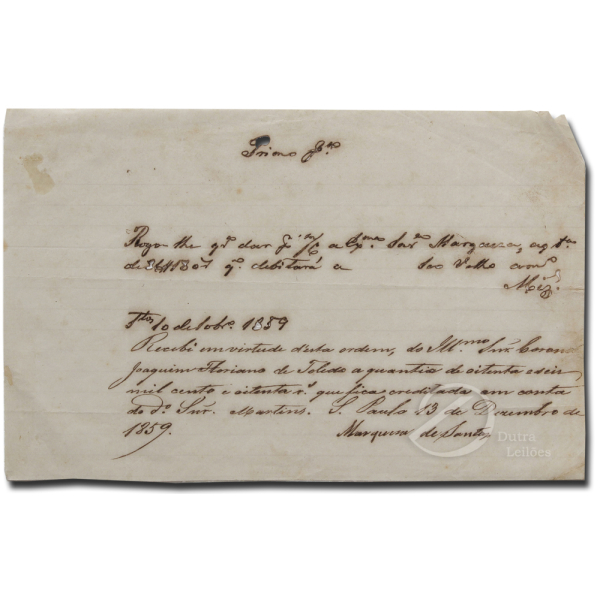 Primo
Rogo-lhe qᵉ dar pʳ m/c a Exᵐᵃ Snrᵃ Marqueza, a qᵗⁱᵃ
de qᵉ debitará a seo Velho amᵒ
1859
Recebi em virtude desta ordem, do Illᵐᵒ Snr Coronel
Joaquim Floriano de Toledo a quantia de oitenta e seis
mil cento e oitenta rˢ que fica creditada em conta
do dᵒ Snr. Martins. S. Paulo 13 de Dezembro de
1859. Marqueza de Santos
Dutra
Leilões